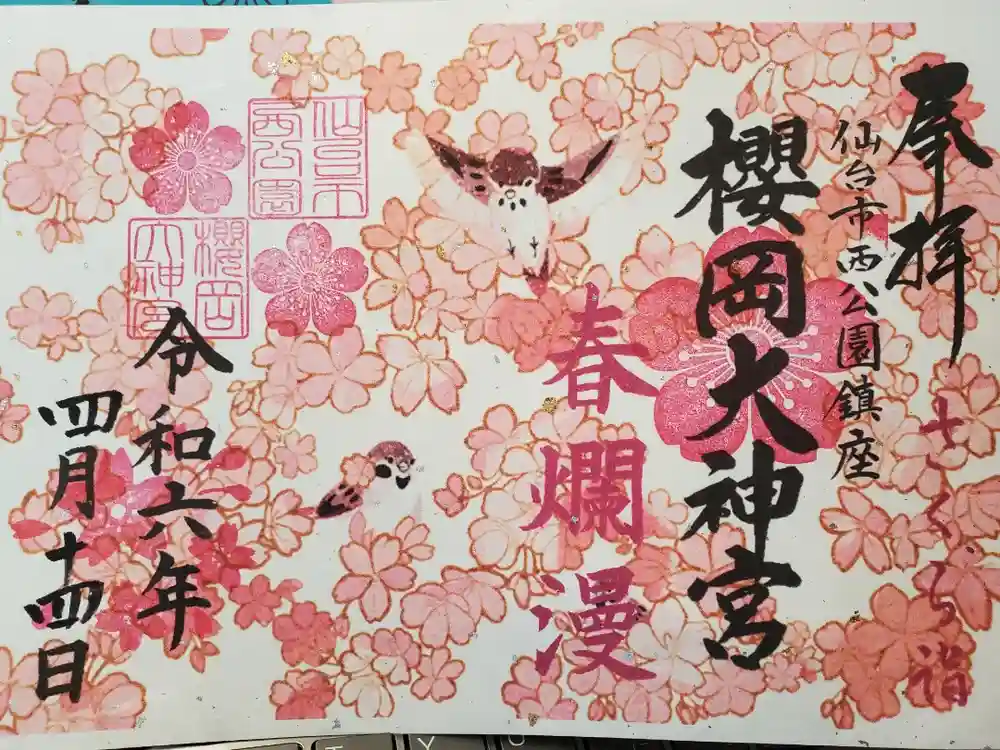 奉拝
さくら詣
仙台市西公園鎮座
櫻岡大神宮
春爛漫
仙台市
西公園
櫻岡
大神宮
令和六年
四月十四日
T Y